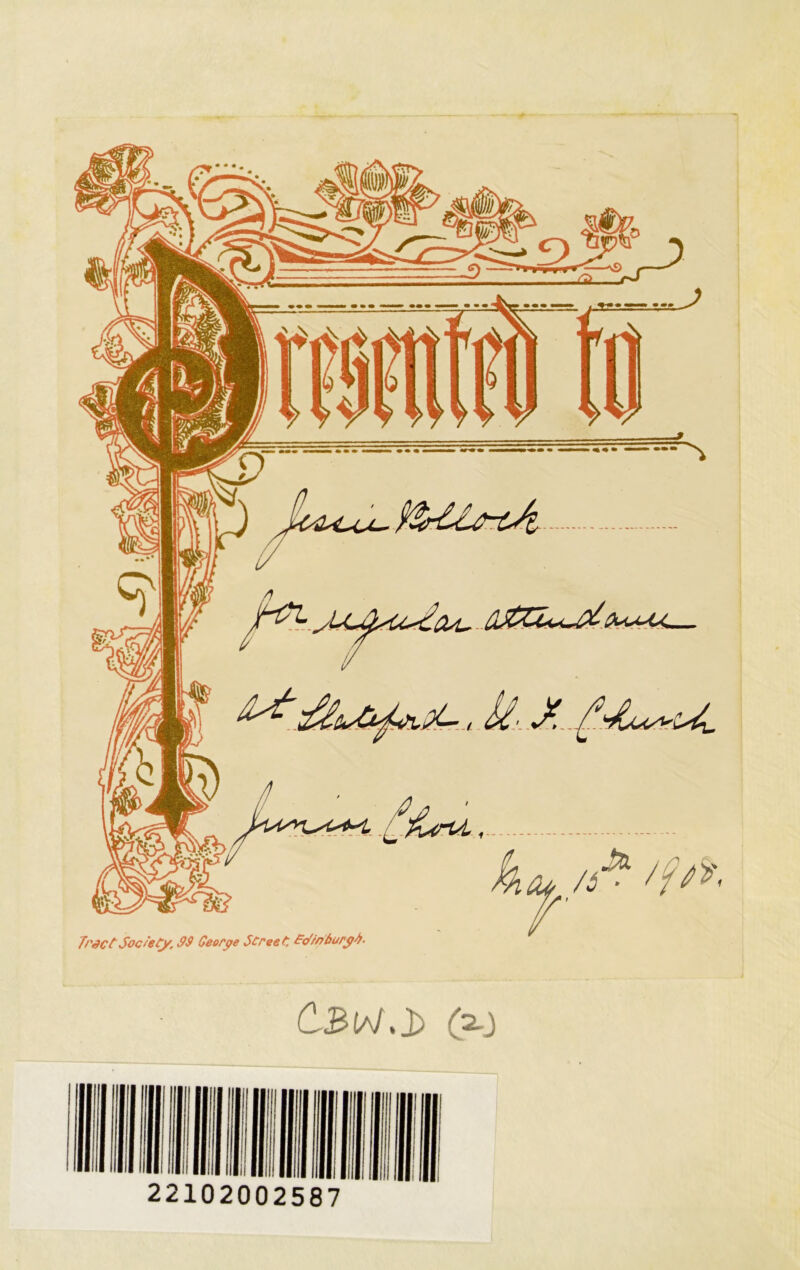 Presented to
Jessie Pollock
for regular attendance
at Slateford, U. F. Church
Junior Choir.
May. 15th 1908.
Tract Society, 99 George Street, Edinburgh.
CBW.D (2)
22102002587